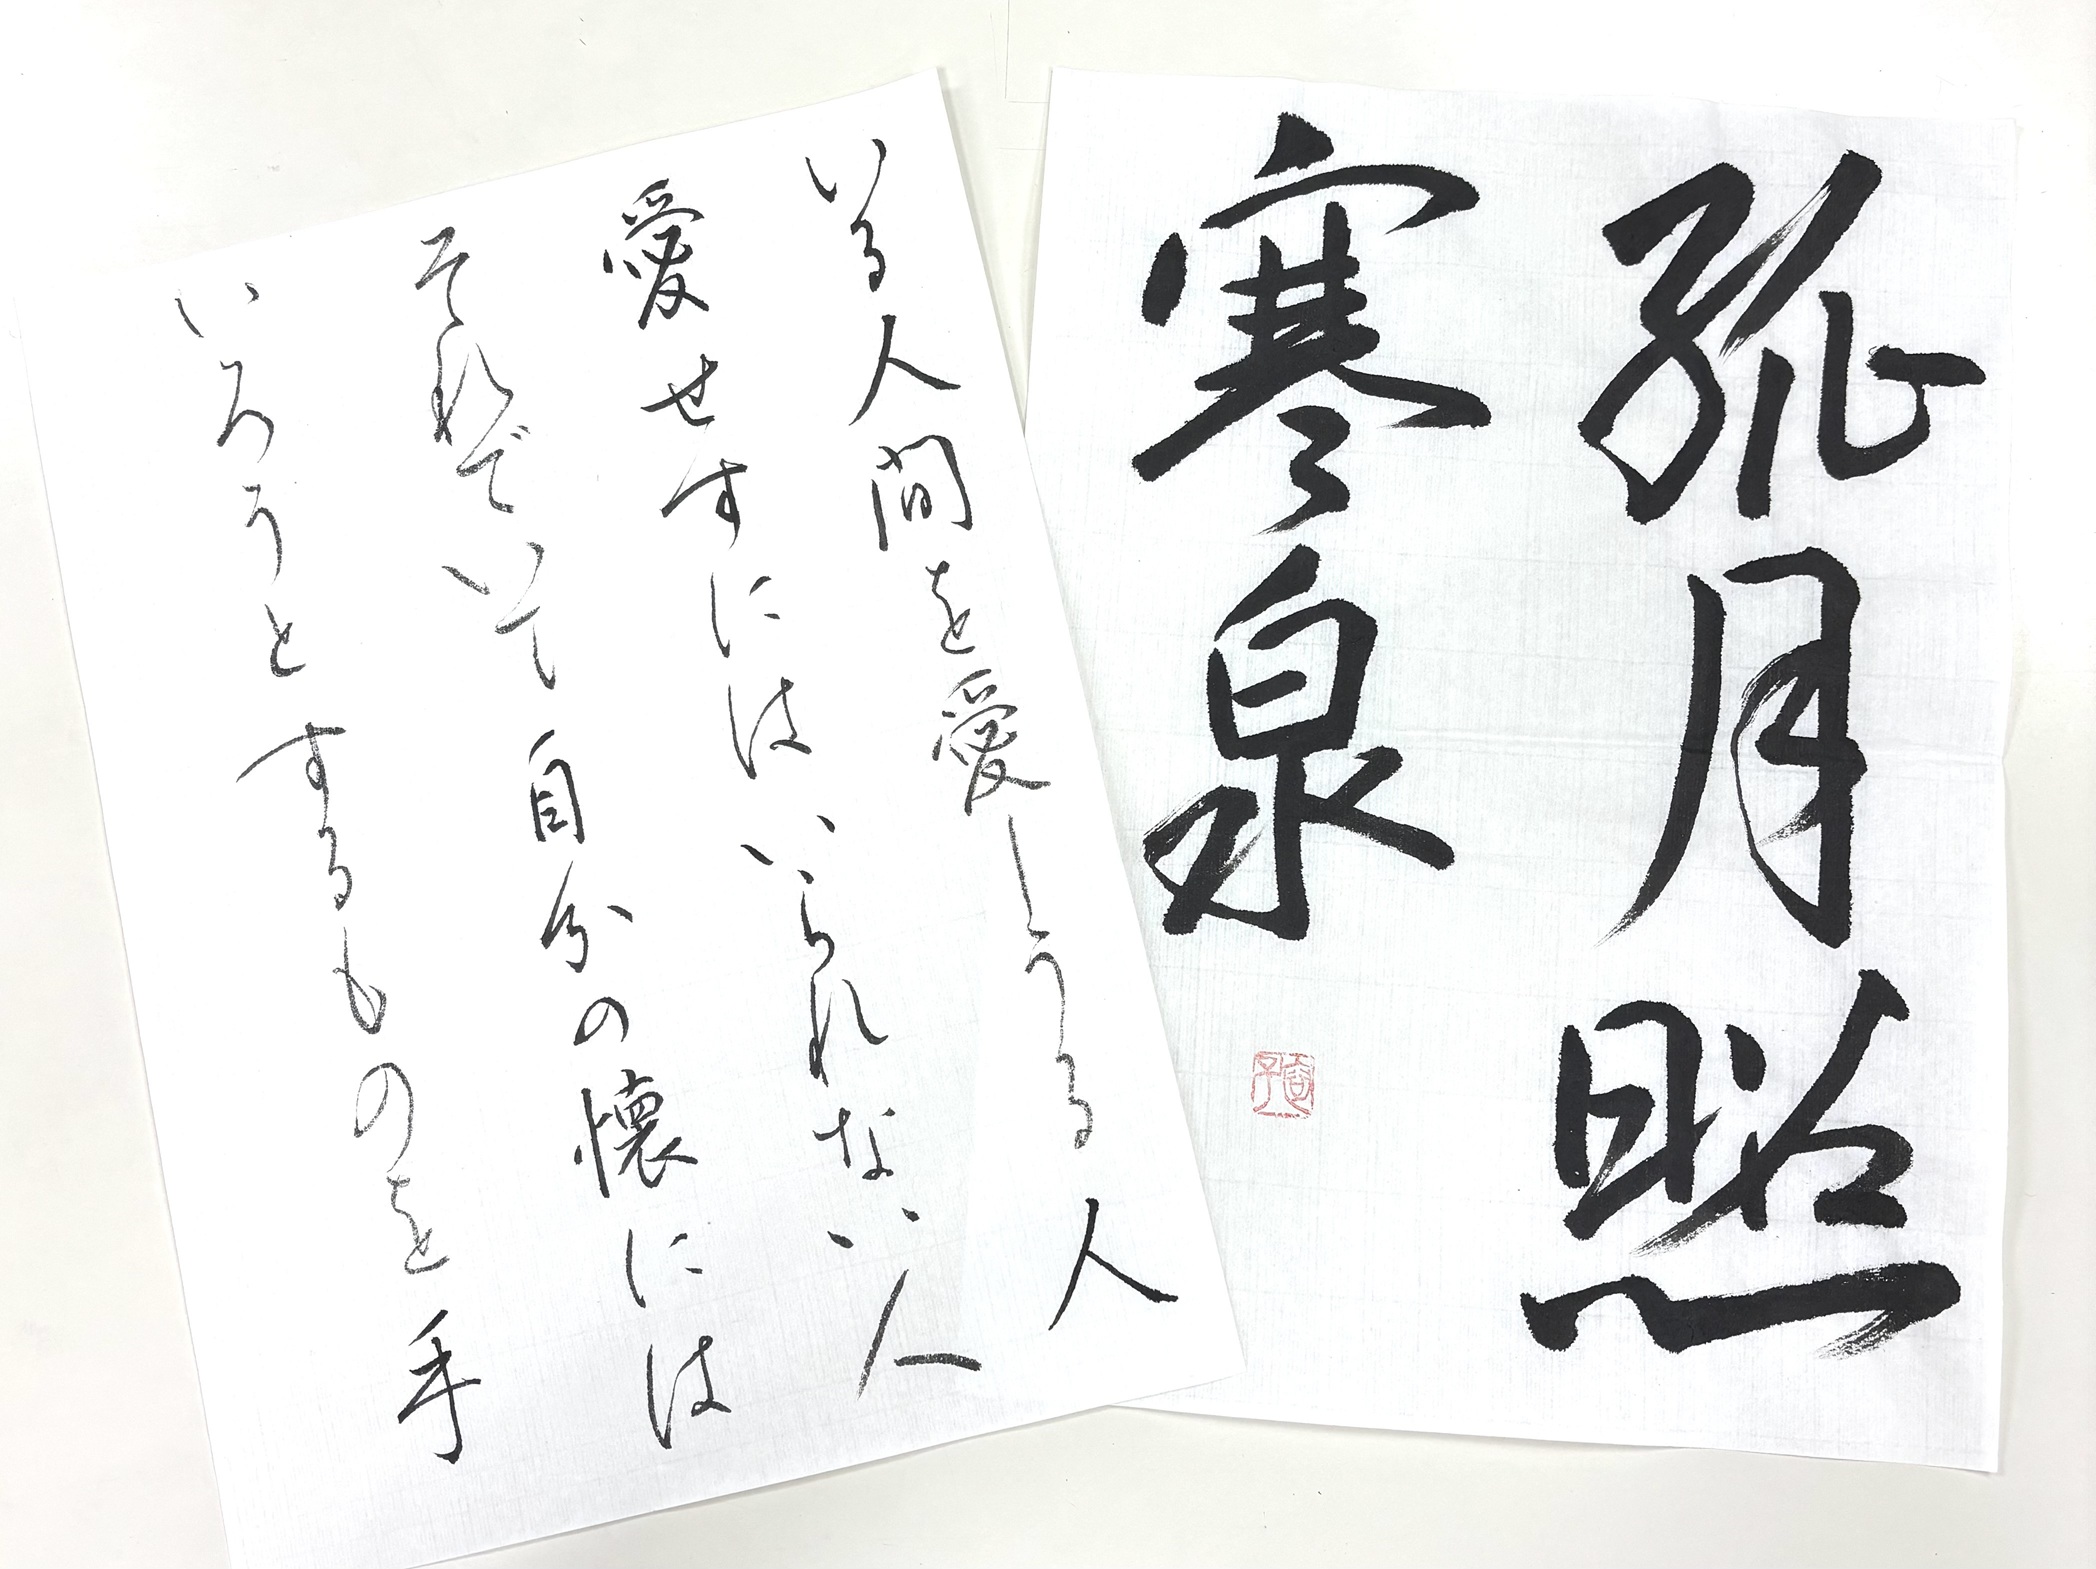 孤月照
寒泉
いる人間を愛しうる人
愛せすにはいられない人
それでいて自分の懐には
いろうとするものを手